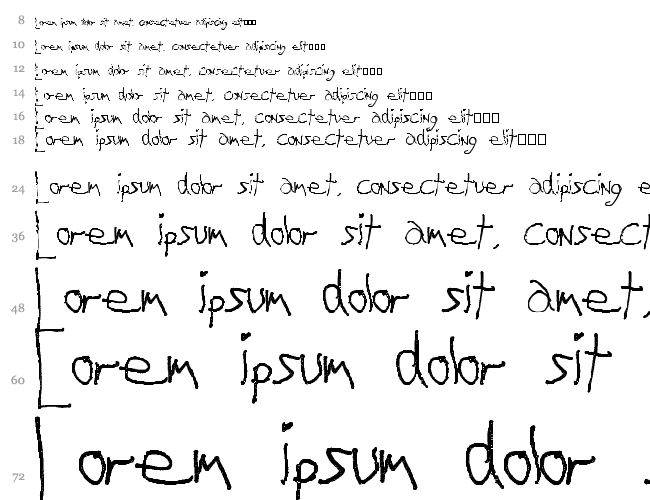 8 Lorem ipsum dolor sit amet, consectetuer adipiscing elit□□□
10 Lorem ipsum dolor sit amet, consectetuer adipiscing elit□□□
12 Lorem ipsum dolor sit amet, consectetuer adipiscing elit□□□
14 Lorem ipsum dolor sit amet, consectetuer adipiscing elit□□□
16 Lorem ipsum dolor sit amet, consectetuer adipiscing elit□□□
18 Lorem ipsum dolor sit amet, consectetuer adipiscing elit□□□
24 Lorem ipsum dolor sit amet, consectetuer adipiscing e
36 Lorem ipsum dolor sit amet, consect
48 Lorem ipsum dolor sit amet,
60 Lorem ipsum dolor sit
72 Lorem ipsum dolor